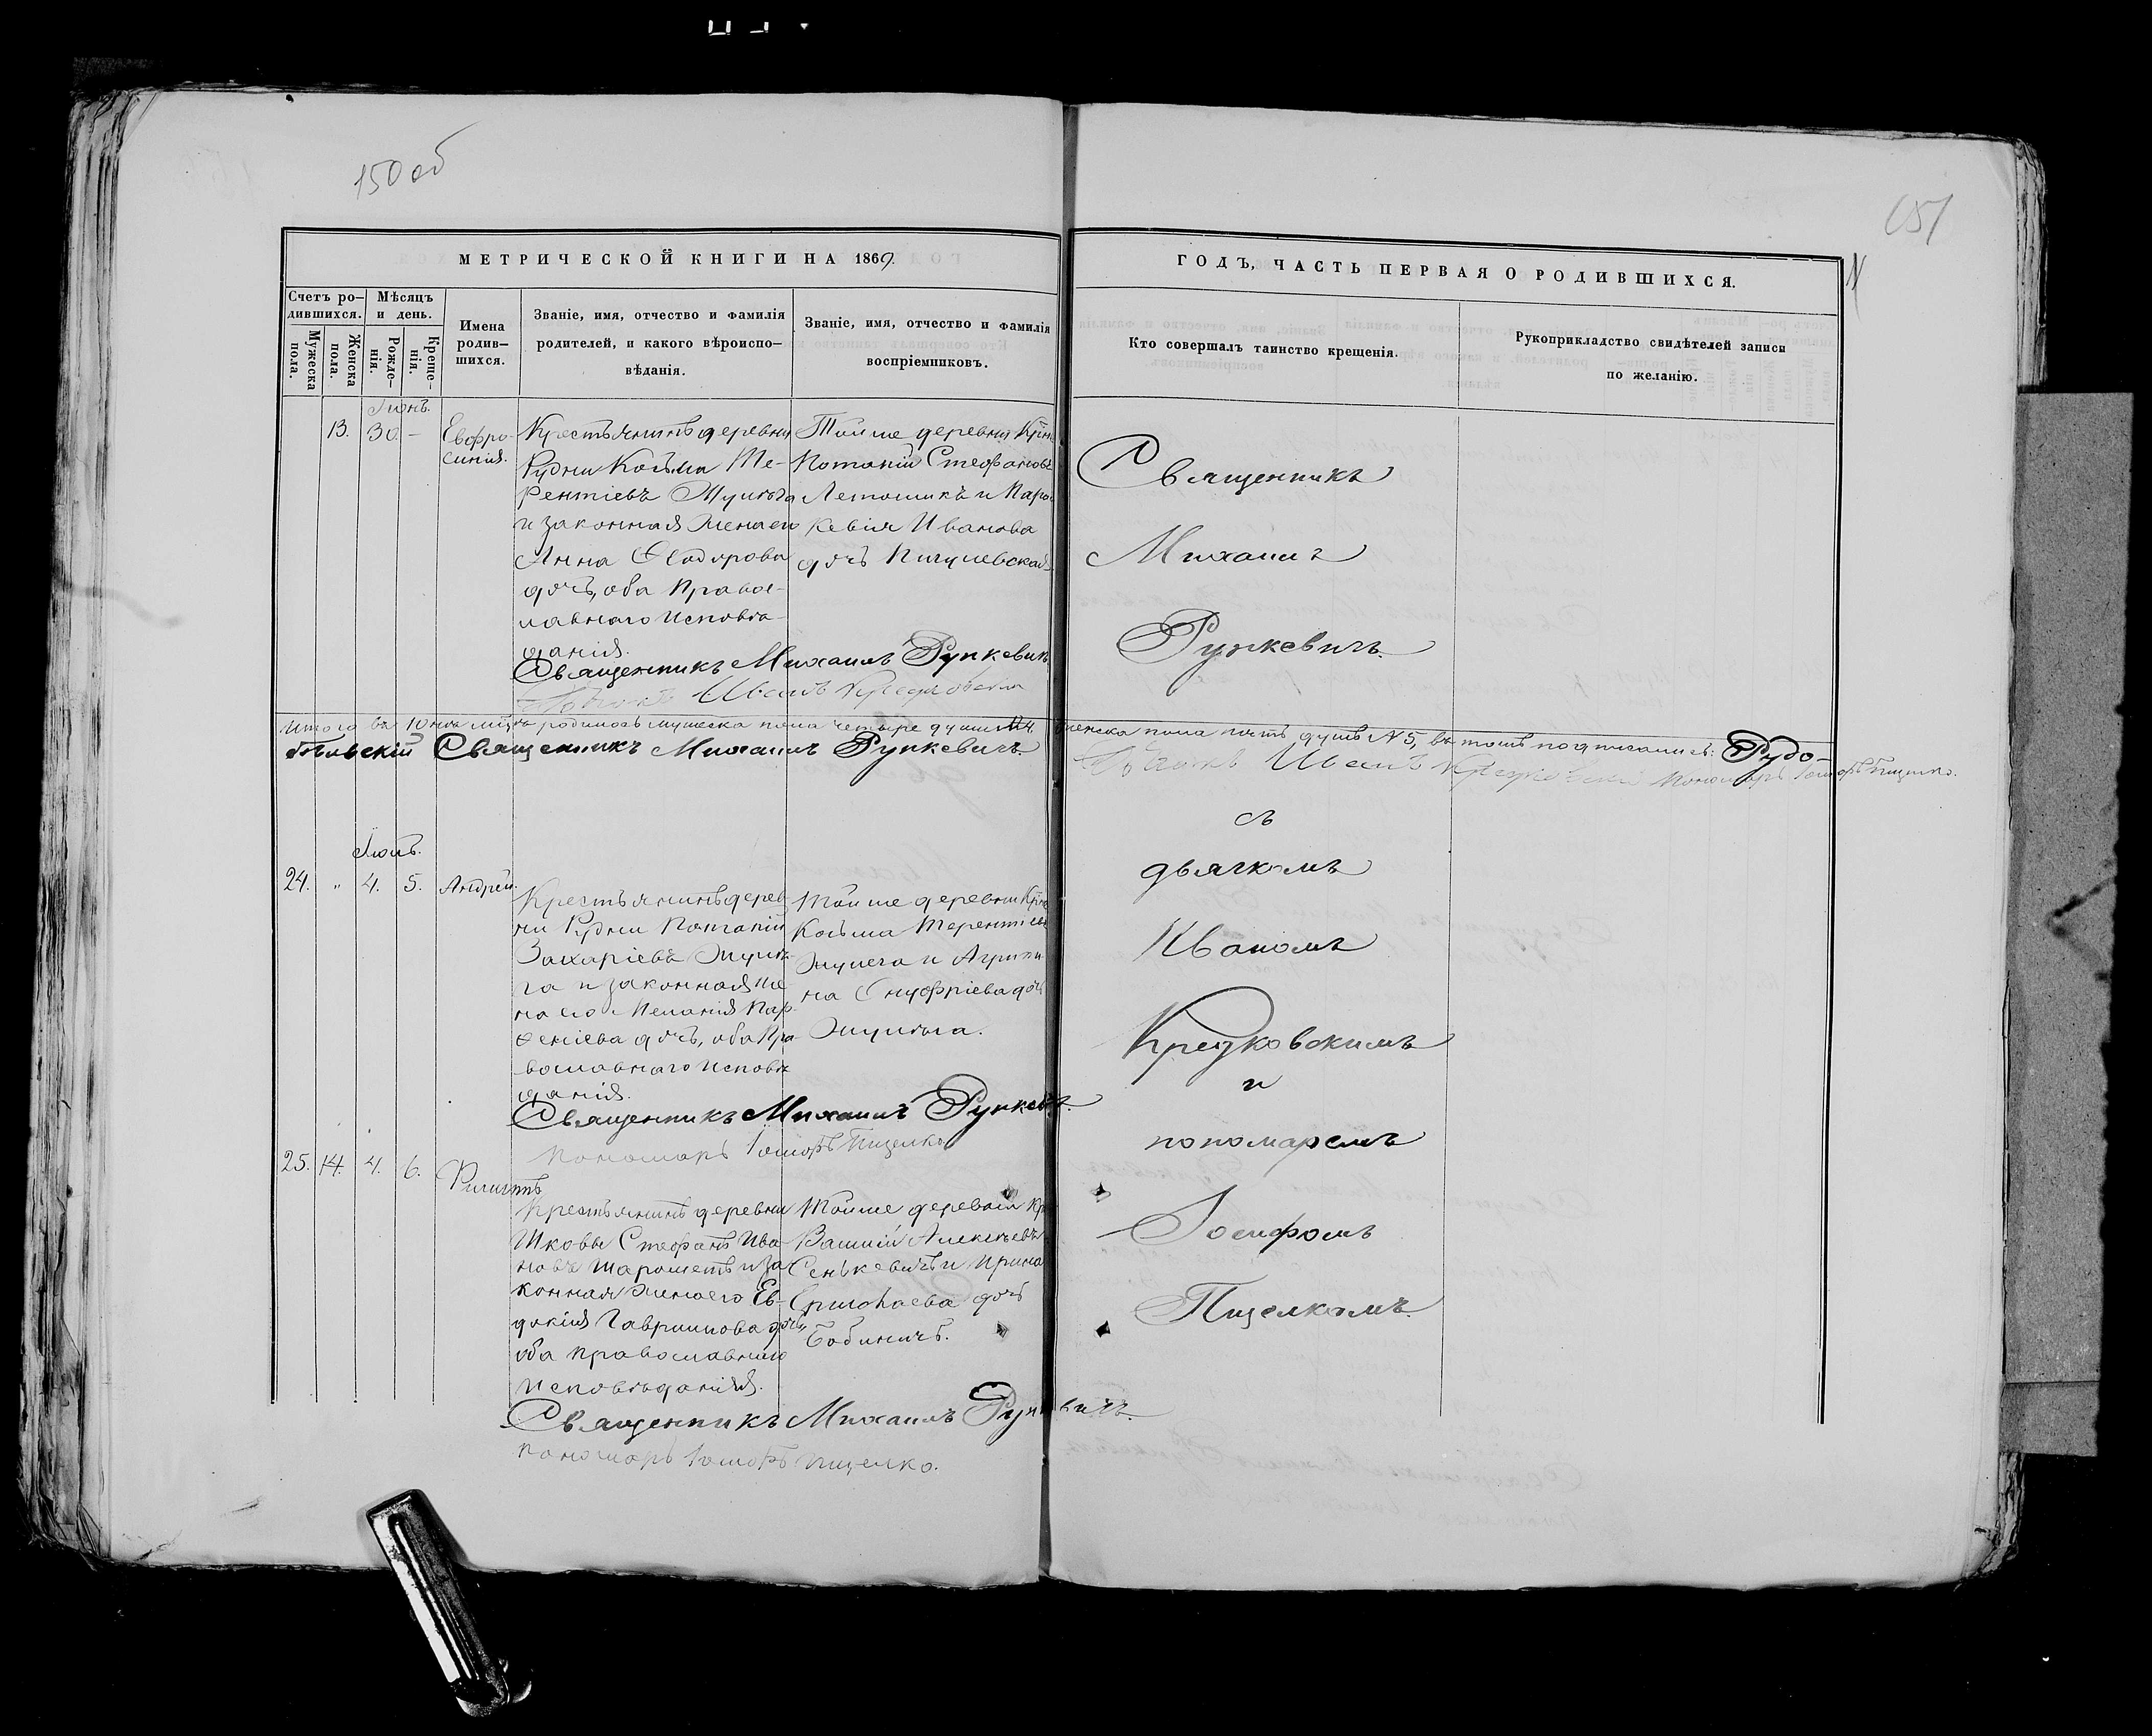 150 об
151
МЕТРИЧЕСКОЙ КНИГИ НА 1869.
ГОДЪ, ЧАСТЬ ПЕРВАЯ О РОДИВШИХСЯ.
Счетъ ро-
дившихся.
Мужеска
пола.
Женска
пола.
Мѣсяцъ
и день.
Рожде-
нія.
Креще-
нія.
Имена
родив-
шихся.
Званіе, имя, отчество и фамилія
родителей, и какого вѣроиспо-
вѣданія.
Званіе, имя, отчество и фамилія
воспріемниковъ.
Кто совершалъ таинство крещенія.
Рукоприкладство свидѣтелей записи
по желанію.
Іюнь.
13. 30. –
Евфро-
синія.
Крестьянинъ деревни
Рудни Косьма Те-
рентіевъ
и законная жена его
Анна Ѳеодорова
дочь, оба Правос-
лавнаго Исповѣ-
данія.
Священникъ Михаилъ Рункевичъ
Иванъ
Тойже деревни
Потапій Стефановъ
и Парас
кевія Иванова
дочь
Священникъ
Михаилъ
Рункевичъ.
Итого въ Іюнѣ родилось мужеска пола четыре души №4. женска пола пять душъ №5, въ томъ подписались: Рудо-
бѣльскій Священникъ Михаилъ Рункевичъ.
Иванъ Пономарь Іосифъ Пицелко.
Іюль.
24. " 4. 5. Андрей.
Крестьянинъ дерев
ни Рудни Потапій
Захаріевъ
га и законная же
на его Меланія Пар
ѳеніева дочь, оба Пра-
вославнаго Исповѣ
данія.
Священникъ Михаилъ Рункевичъ.
Пономарь Іосифъ Пицелко
Тойже деревни
Косьма Терентіевъ
и Агрипи
на Онуфріева дочь
съ
дьячкомъ
Иваномъ
и
пономаремъ
Іосифомъ
Пицелкомъ.
25. 14. 4. 6.
Крестьянинъ деревни
Шковы Стефанъ Ива
новъ и за
конная жена его Ев-
докія Гавриилова дочь,
оба православнаго
Исповѣданія.
Священникъ Михаилъ Рункевичъ.
Пономарь Іосифъ Пицелко.
Тойже деревни
Василій Алексѣевъ
Сенькевичъ и Ирина
дочь